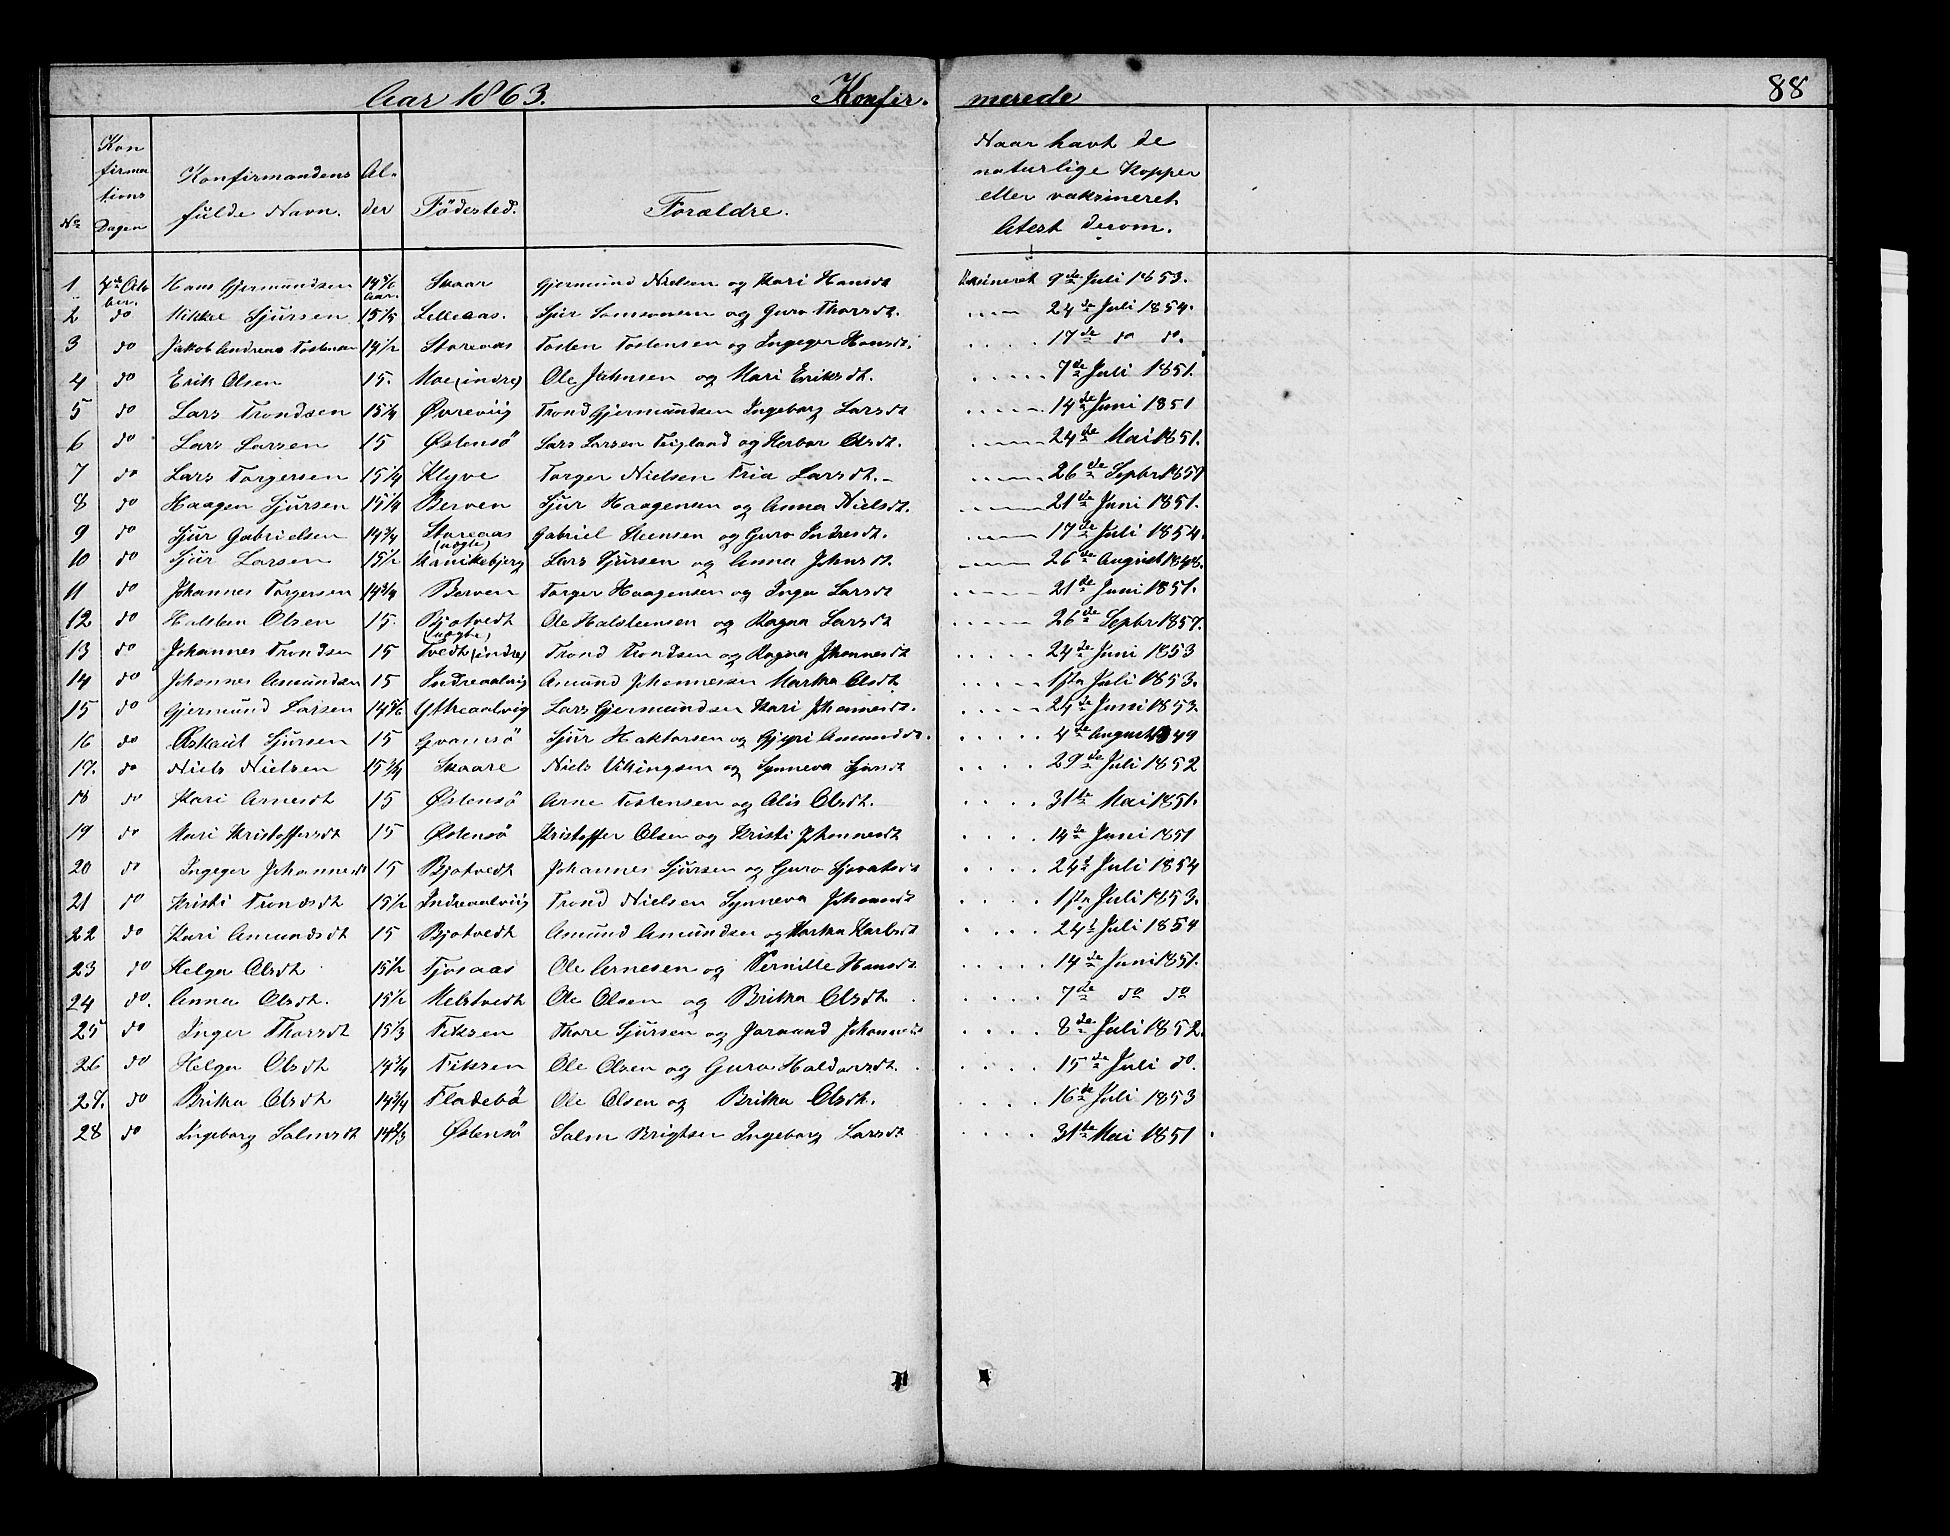 Aar 1863. Konfir. merede 88
No Konfirmations Dagen Konfirmandens fulde Navn. Alder Födested. Forældre. Naar havt de naturlige Kopper eller vaksineret Atest derom.
1 4de October. Hans Gjermundsen 14 5/6 Aar. Skaar Gjermund Nielsen og Kari Hansdt Vaksineret 9de Juli 1853.
2 do Mikkel Sjursen 15 1/4 Lilleaas. Sjur Samsonsen og Guro Thorsdt. 24de Juli 1854.
3 do Jakob Andreas Tostensen 14 1/2 Storeaas Tosten Tostensen og Ingeger Hansdt. 17de do do.
4 do Erik Olsen 15. Moe (indre) Ole Johnsen og Mari Eriksdt. 7de Juli 1851.
5 do Lars Trondsen 15 1/4 Øvreviig Trond Gjermundsen Ingeborg Larsdt 14de Juni 1851
6 do Lars Larsen 15 Østensö Lars Larsen Teigland og Herbor Olsdt. 24de Mai 1851.
7 do Lars Torgersen 15 1/4 Klyve Torger Nielsen Tria Larsdt. 26de Septbr 1857
8 do Haagen Sjursen 15 1/4 Berven Sjur Haagensen og Anna Nielsdt. 21de Juni 1851.
9 do Sjur Gabrielsen 14 3/4 Storeaas Gabriel Steensen og Guro Indresdt. 17de Juli 1854.
10 do Sjur Larsen 15 1/2 (nögte) Skarvikebjerg Lars Sjursen og Anna Johnsdt. 26de August 1848.
11 do Johannes Torgersen 14 3/4 Berven Torger Haagensen og Inga Larsdt 21de Juni 1851.
12 do Halsten Olsen 15. Bjotvedt Ole Halsteensen og Ragna Larsdt 26de Septbr 1857.
13 do Johannes Trondsen 15 (nögte) Tvedt (indre) Trond Trondsen og Ragna Johannesdt 24de Juni 1853
14 do Johannes Amundsen 15 Indreaalvig Amund Johannessen Martha Olsdt. 1ste Juli 1853.
15 do Gjermund Larsen 14 5/6 Ytreaalvig Lars Gjermundsen Kari Johannesdt. 24de Juni 1853.
16 do Askaut Sjursen 15 Qvamsö Sjur Haktorsen og Gjyri Amundsdt. 4de August 1849
17. do Niels Nielsen 15 3/4 Skaare Niels Vikingsen og Synneva Sjursdt 29de Juli 1852
18 do Kari Arnesdt 15 Østensö Arne Tostensen og Alis Olsdt. 31te Mai 1851.
19 do Kari Kristoffersdt 15 Østensö Kristoffer Olsen og Kristi Johannesdt 14de Juni 1851
20 do Ingeger Johannesdt 15 Bjotvedt Johannes Sjursen og Guro Sjovatsdt 24de Juli 1854
21 do Kristi Trondsdt 15 1/2 Indreaalviig Trond Nielsen Synneva Johansdt 1ste Juli 1853.
22 do Kari Amundsdt 15 Bjotvedt Amund Amundsen og Martha Karlsdt 24de Juli 1854
23 do Helga Olsdt 15 1/2 Tjosaas Ole Arnesen og Pernille Hansdt 14de Juni 1851.
24 do. Anna Olsdt. 15 1/2 Melstvedt Ole Olsen og Britha Olsdt. 7de do do
25 do Inger Thorsdt 15 1/3 Tiksen Thore Sjursen og Joraand Johannesdt 8de Juli 1852.
26 do Helga Olsdt 14 3/4 Tiksen Ole Olsen og Guro Haldorsdt. 15de Juli do.
27. do Britha Olsdt 14 3/4 Fladebö Ole Olsen og Britha Olsdt. 16de Juli 1853
28 do Ingeborg Salmsdt 14 2/3 Østensö Salm Brigtsen Ingeborg Larsdt 31te Mai 1851.